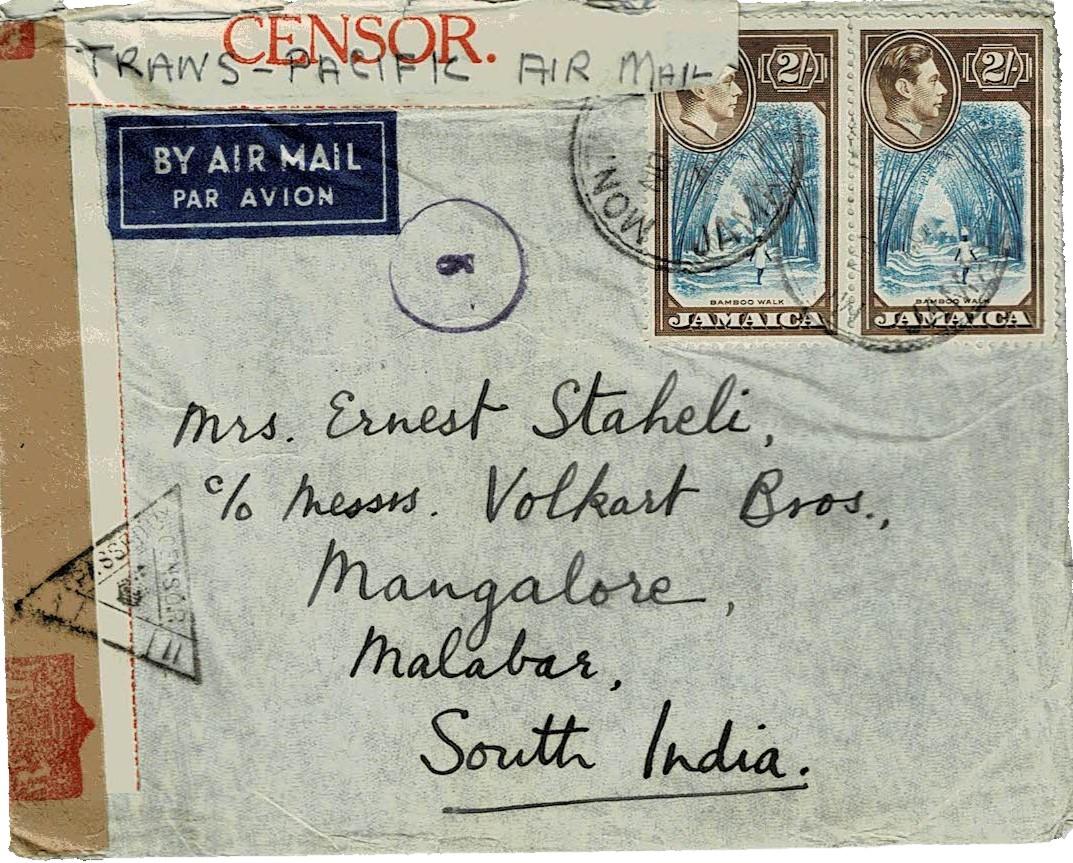 CENSOR.
TRANS-PACIFIC AIR MAIL
2/-
2/-
BY AIR MAIL
PAR AVION
MON
JAMAI
BAMBOO WALK
BAMBOO WALK
JAMAICA
JAMAICA
Mrs. Ernest Staheli,
c/o Messrs. Volkart Bros.,
Mangalore,
Malabar,
South India.
CENSOR